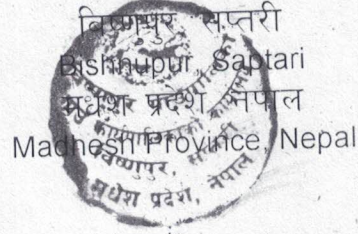 बिष्णुपुर सप्तरी
Bishnupur Saptari
मधेश प्रदेश नेपाल
Madhesh Province, Nepal
कार्यपालिकाको
बिष्णुपुर,
मधेश प्रदेश, नेपाल